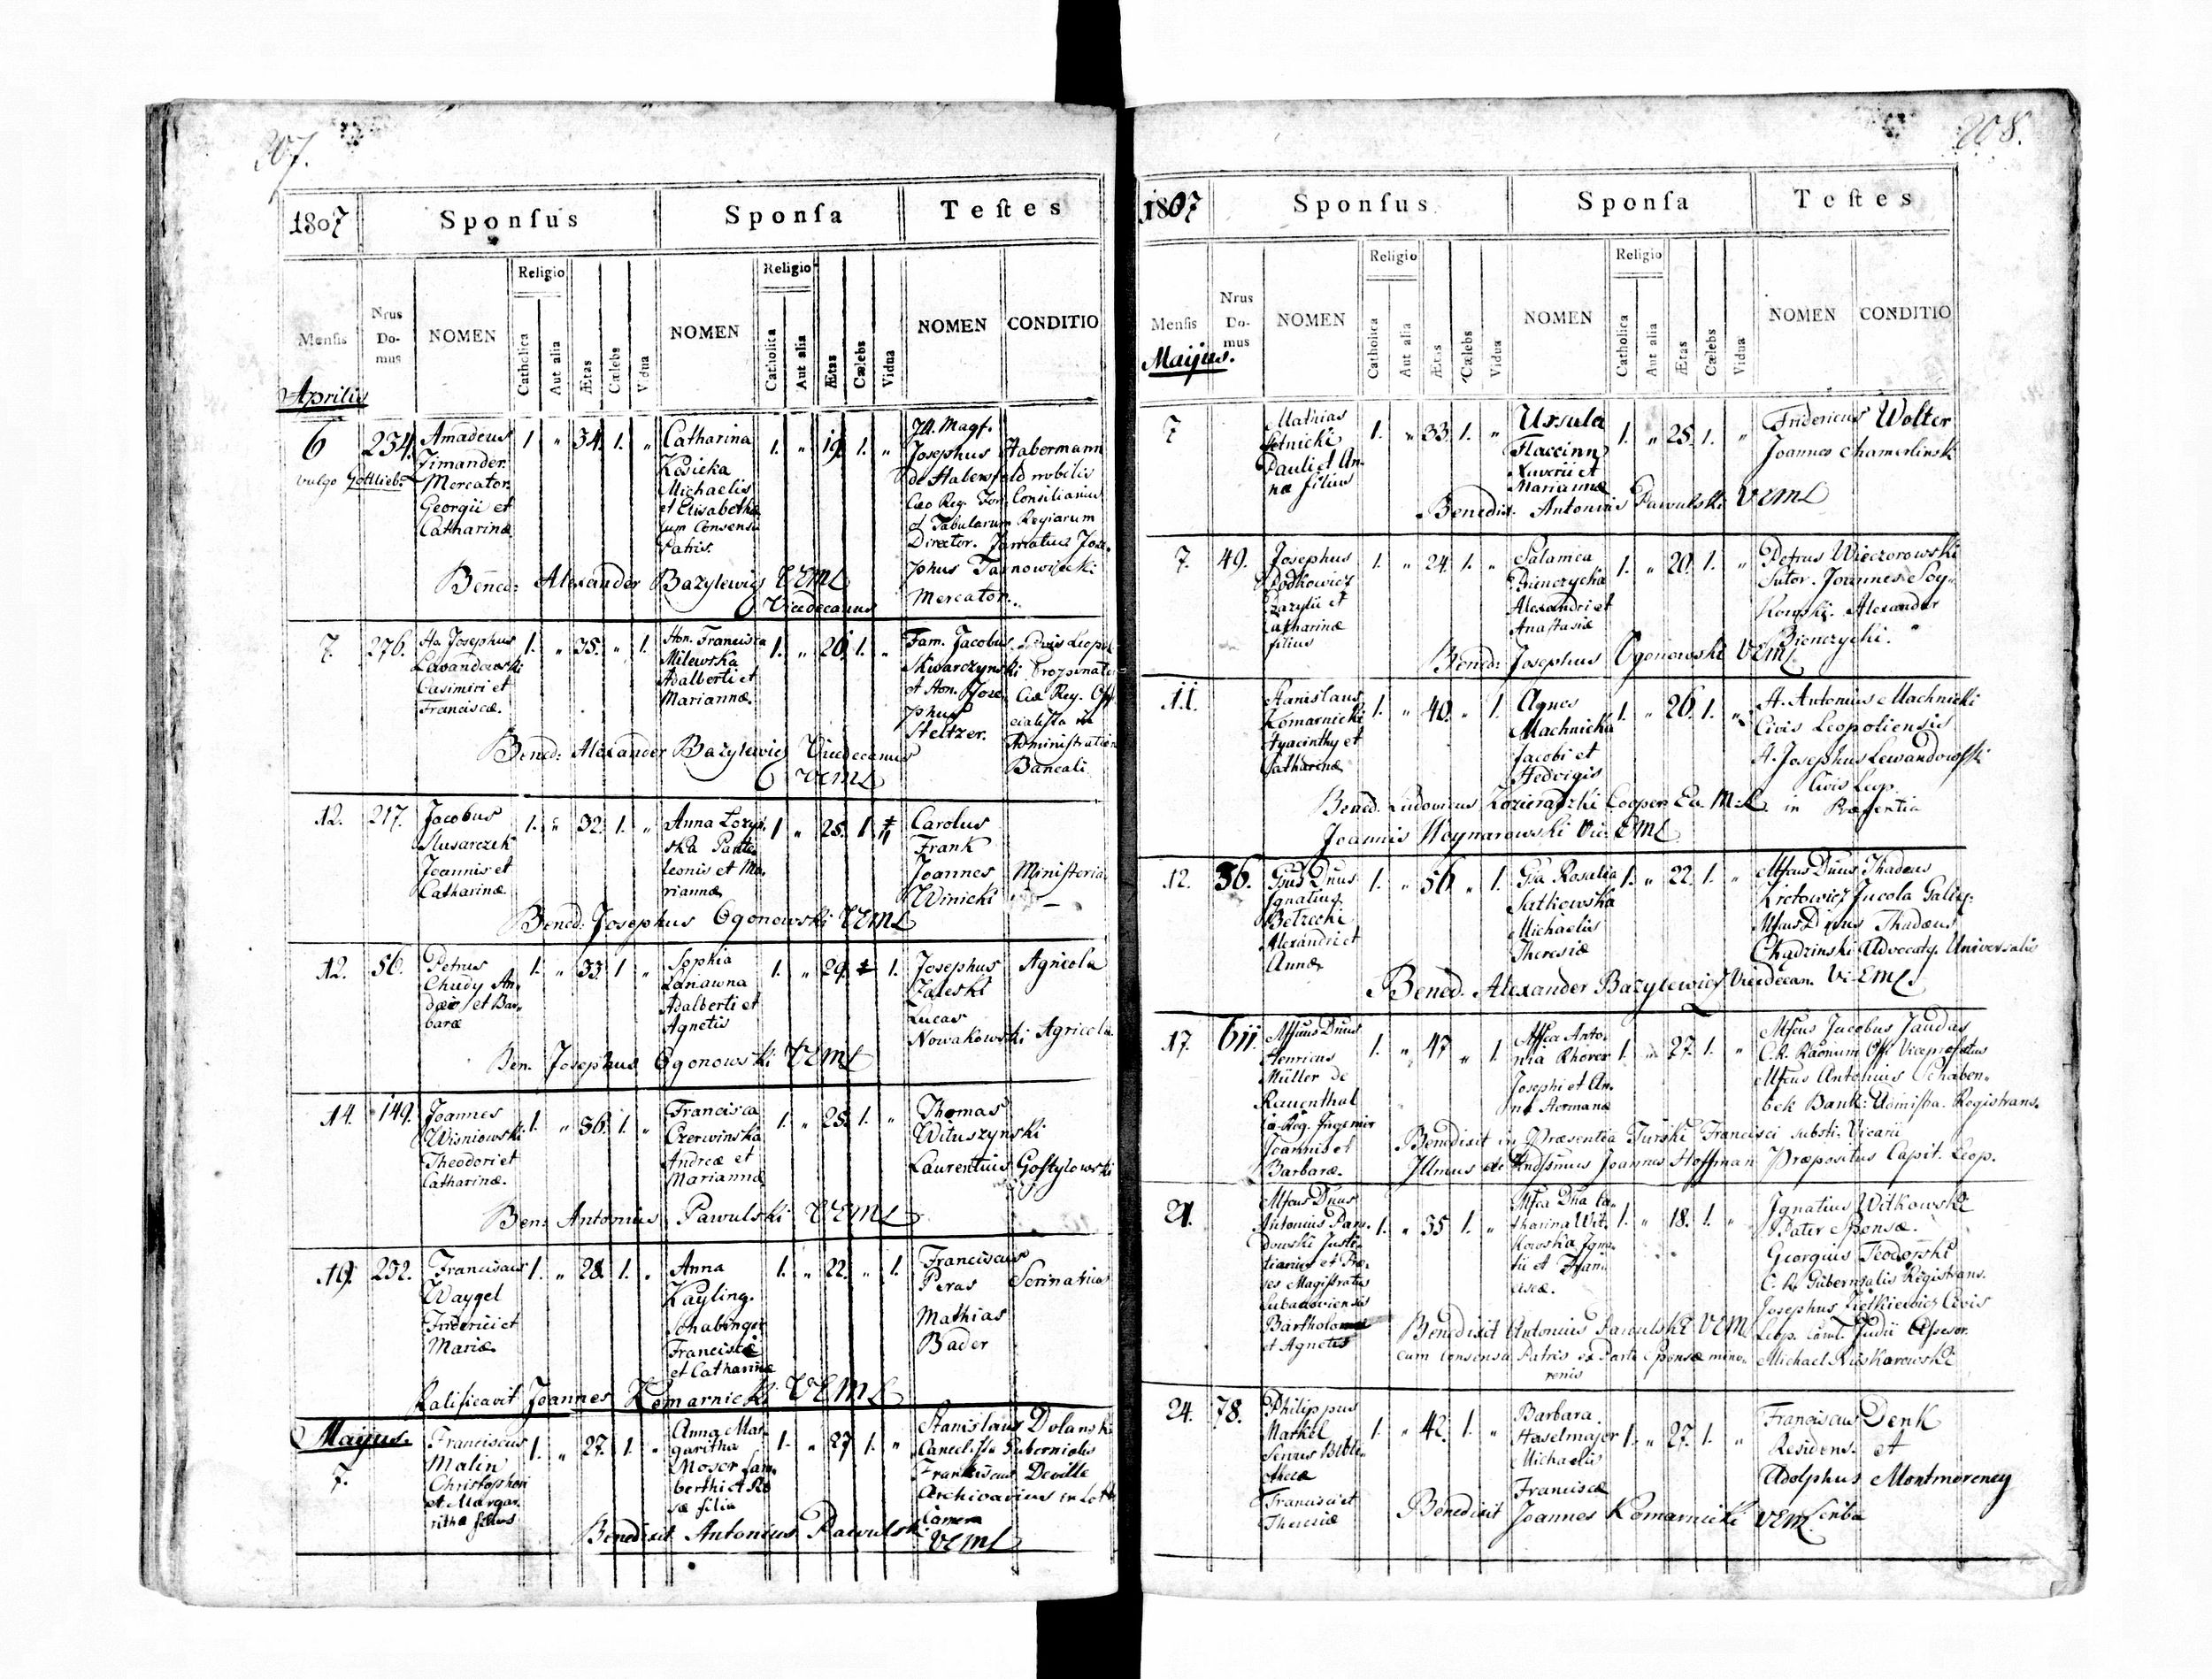 207.
1807 Sponſus Sponſa Teſtes
Menſis Nrus Do- mus NOMEN Religio Catholica Aut alia Ætas Cælebs Vidua NOMEN Religio Catholica Aut alia Ætas Cælebs Vidua NOMEN CONDITIO
Aprilis
6 234. Amadeus 1 " 34. 1. " Catharina 1. " 19. 1. "
vulgo Gottlieb
Zimander
Mercator
Georgii et
Catharinæ
Kosicka
Michaelis
et Elisabethæ
cum Consensu
Patris.
Josephus Habermann
de Habersfeld nobilis
Consiliarius
et Tabularum Regiarum
Director.
Josephus Tarnowiecki
Mercator.
Bened: Alexander Bazylewicz VEML
Vicedecanus
7. 276. Ho. Josephus 1. " 35. " 1. Hon. Francisca 1. " 26. 1. "
Lewandowski
Casimiri et
Franciscæ.
Milewska
Adalberti et
Mariannæ.
Fam. Jacobus
Skwarczynski
et Hon. Jose
phus
Steltzer.
Administration
Bancali
Bened: Alexander Bazylewicz Vicedecanus
VEML
12. 217. Jacobus 1. " 32. 1. " Anna 1 " 25. 1
Slusarczik
Joannis et
Catharinæ
Panta
leonis et Ma
riannæ
Carolus
Frank
Joannes
Winicki
Bened: Josephus Ogonowski VEML
12. 56. Petrus 1. " 33 1 " Sophia 1. " 29. 1.
Chudy An-
dreæ et Bar-
baræ
Lanawna
Adalberti et
Agnetis
Josephus Agricola
Zaleski
Lucas
Nowakowski Agricola
Ben. Josephus Ogonowski VEML
14. 149. Joannes 1. " 36. 1. " Francisca 1. " 25. 1. "
Wisniowski
Theodori et
Catharinæ.
Czerwinska
Andreæ et
Mariannæ
Thomas
Wituszynski
Laurentius Gostylowski
Ben: Antonius Pawulski VEML
19. 232. Franciscus 1. " 28. 1. " Anna 1. " 22. " 1.
Waygel
Friderici et
Mariæ.
Kayling.
Schabinger
Francisci
et Catharinæ
Franciscus
Peras
Mathias
Bader
Ratificavit Joannes Komarnicki VEML
Maijus.
7. Franciscus 1. " 27. 1. " Anna Mar 1. " 27 1. "
Malin
Christophori
et Margar
ritha filius
garitha
Moser Lam
berthi et Ro
sæ filia
Stanislaus Dolanski
Cancellista Gubernialis
Franciscus Deville
Archivarius in Lotto
Camera
Benedixit Antonius Pawulski VEML
208.
1807 Sponſus Sponſa Teſtes
Menſis Nrus Do- mus NOMEN Religio Catholica Aut alia Ætas Cælebs Vidua NOMEN Religio Catholica Aut alia Ætas Cælebs Vidua NOMEN CONDITIO
Maijus.
7 Mathias 1. " 33. 1. " Ursula 1. " 25. 1. "
Letnicki
Pauli et An-
na filius
Flaccinn
Xaverii et
Mariannæ
Fridericus Wolter
Joannes Chamerlinsk
Benedix. Antonius Pawulski VEML
7. 49. Josephus 1. " 24. 1. " Salamea 1. " 20. 1. "
Bazylii et
Catharinæ
filius
Bienczycka
Alexandri et
Anastasiæ
Petrus Wieczorowski
Sutor. Joannes Soy-
kowski. Alexander
Bienczycki.
Bened: Josephus Ogonowski VEML
11. Stanislaus 1. " 40. " 1. Agnes 1. " 26. 1. "
Komarnicki
Hyacinthy et
Catharinæ
Machnicka
Jacobi et
Hedvigis
H. Antonius Machnicki
Civis Leopoliensis
H. Josephus Lewandowski
Civis Leop.
Bened. Ludovicus Kozieradzki Cooper. Ec. M. L in Præsentia
Joannis Woynarowski Vic. EML
12. 36. Gsus Dnus 1. " 56. " 1. Gsa Rosalia 1. " 22. 1. "
Ignatius
Betzecki
Alexandri et
Annæ
Satkowska
Michaelis
Theresiæ
Mfcus Dnus Thadeus
Krotowicz Incola Galiz:
Mfcus Dnus Thadæus
Chądzinski Advocatg. Universalis
Bened. Alexander Bazylewicz Vicedecan. VEML
17. 611. Mfcus Dnus 1. " 47 " 1. Mfca Anto- 1. " 27. 1. "
Henricus
Müller de
Rauenthal
Joannis et
Barbaræ.
nia Rhover
Josephi et An-
na Hermanæ
Mfcus Jacobus Jaudas
C. R. Raonum Off. Vicepræfectus
Mfcus Antonius Schaben-
bek Bank: Administra. Registrans.
Benedixit in Præsentia Turski Francisci substi. Vicarii
Illmus et Rndssimus Joannes Hoffman Præpositus Capit. Leop.
21. Mfcus Dnus 1. " 35 1. " Mfca Dna Ca- 1. " 18. 1. "
Antonius Pam-
dowski Justi-
tiarius et Præ-
ses Magistratus
Lubaczoviensis
Bartholomei
et Agnetis
tharina Wit-
kowska Igna-
tii et Fran-
ciscæ.
Ignatius Witkowski
Pater Sponsæ.
Georgius Teodorski
C. R. Gubernialis Registrans.
Civis
Leop. Judii Assesor.
Benedixit Antonius Pawulski VEML
cum Consensu Patris ex Parte Sponsæ mino-
renis
24. 78. Philippus 1. " 42. 1. " Barbara 1. " 27. 1. "
Markel
Francisci et
Theresiæ
Haselmajer
Michaelis
Franciscæ
Franciscus Denk
Residens. et
Adolphus Montmorency
Scriba
Benedixit Joannes Komarnicki VEML